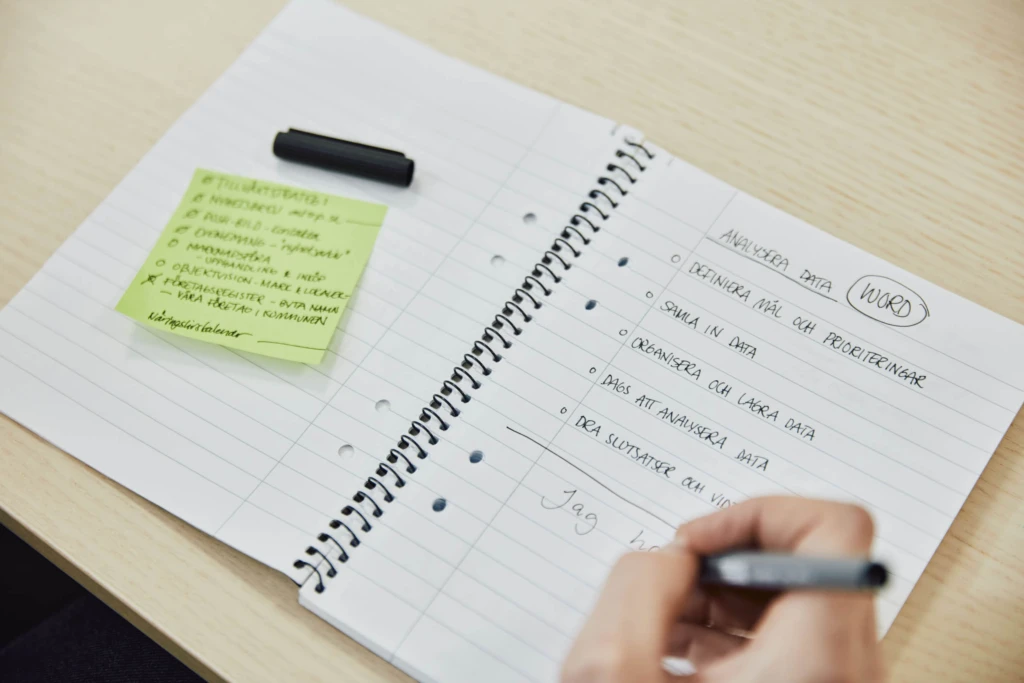 TILLVÄXTSTRATEGI
NYHETSBREV
EVENEMANG -
MARKNADSFÖRA
- UPPHANDLING & INKÖP
OBJEKTVISION - MARK & LOKALER
FÖRETAGSREGISTER - BYTA NAMN
- VÅRA FÖRETAG I KOMMUNEN
Näringslivskalender
ANALYSERA DATA WORD
DEFINIERA MÅL OCH PRIORITERINGAR
SAMLA IN DATA
ORGANISERA OCH LAGRA DATA
DAGS ATT ANALYSERA DATA
DRA SLUTSATSER OCH
Jag